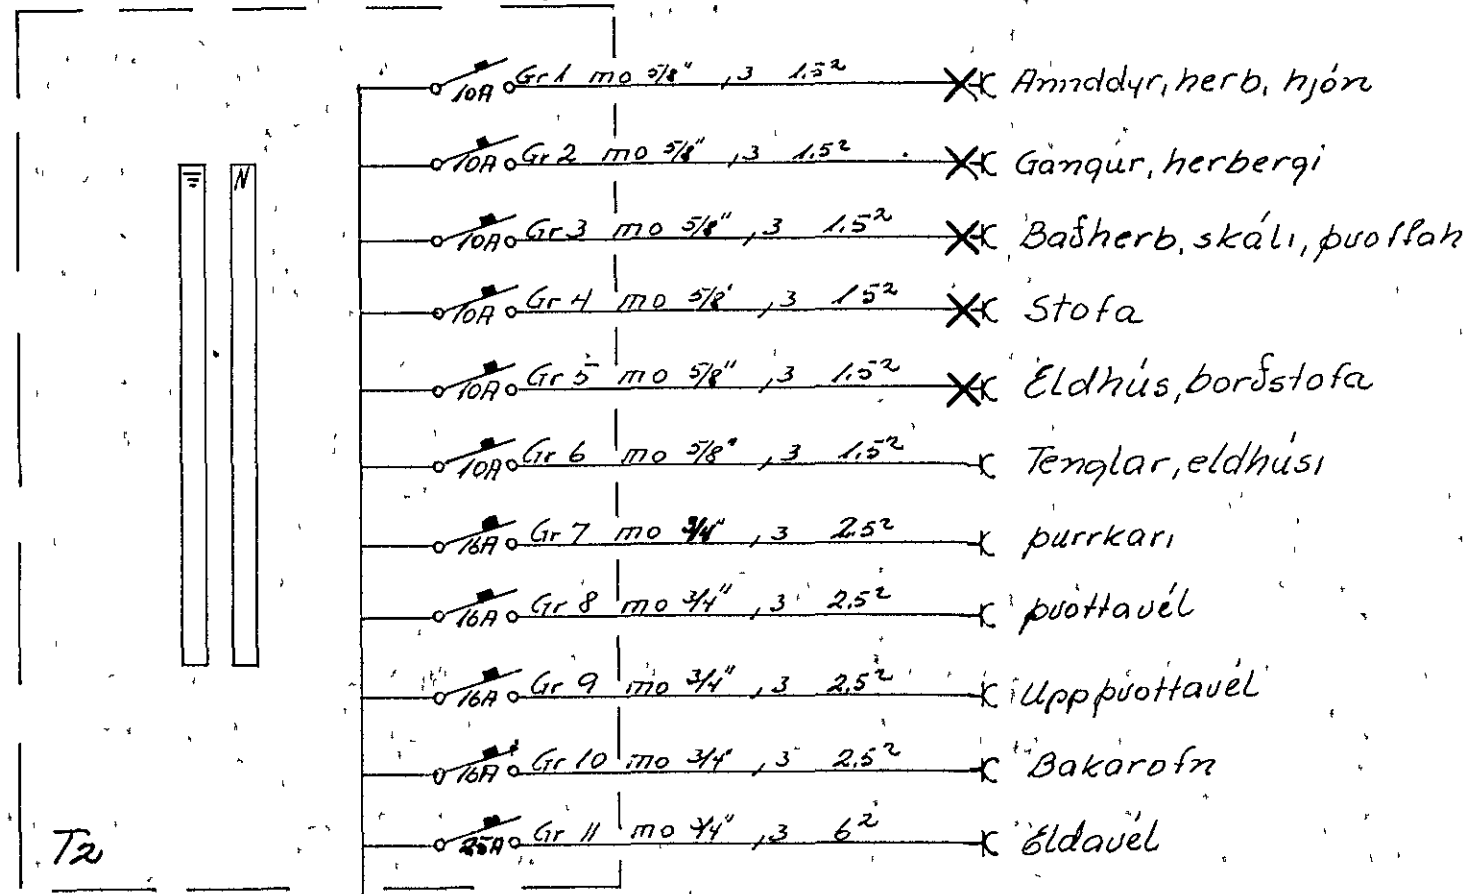 10A Gr 1 mo 5/8" , 3 1.5² Annddyr, herb, hjón
N
10A Gr 2 mo 5/8" , 3 1.5² Gangur, herbergi
10A Gr 3 mo 5/8" , 3 1.5² Baðherb, skáli, þvottah
10A Gr 4 mo 5/8" , 3 1.5² Stofa
10A Gr 5 mo 5/8" , 3 1.5² Eldhús, borðstofa
10A Gr 6 mo 5/8" , 3 1.5² Tenglar, eldhúsi
16A Gr 7 mo 3/4" , 3 2.5² þurrkari
16A Gr 8 mo 3/4" , 3 2.5² þvottavél
16A Gr 9 mo 3/4" , 3 2.5² Uppþvottavél
16A Gr 10 mo 3/4" , 3 2.5² Bakarofn
25A Gr 11 mo 3/4" , 3 6² Eldavél
T2